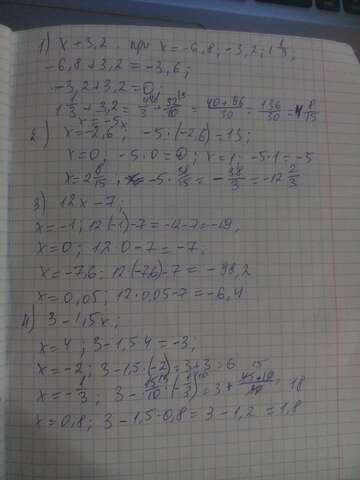 1) x + 3,2 при x = -6,8; -3,2; 1 1/3
-6,8 + 3,2 = -3,6;
-3,2 + 3,2 = 0;
1 1/3 + 3,2 = 4/3 + 32/10 = (40+96)/30 = 136/30 = 4 8/15
x = -5x
2) x = -2,6; -5·(-2,6) = 13;
x = 0; -5·0 = 0; x = 1 -5·1 = -5
x = 2 8/15, -5·38/15 = -38/3 = -12 2/3
3) 12x - 7;
x = -1; 12(-1) - 7 = -12 - 7 = -19,
x = 0; 12·0 - 7 = -7.
x = -7,6; 12(-7,6) - 7 = -98,2
x = 0,05; 12·0,05 - 7 = -6,4
4) 3 - 1,5x;
x = 4; 3 - 1,5·4 = -3;
x = -2; 3 - 1,5·(-2) = 3 + 3 = 6
x = -1/3; 3 - 15/10·(-1/3) = 3 +
x = 0,8; 3 - 1,5·0,8 = 3 - 1,2 = 1,8